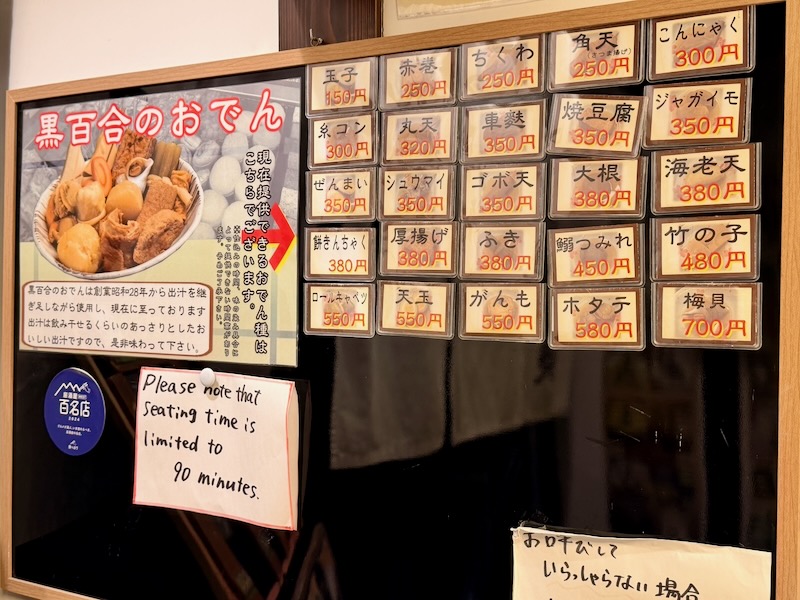 黒百合のおでん
現在提供できるおでん種は
こちらでございます。
黒百合のおでんは創業昭和28年から出汁を継
ぎ足しながら使用し、現在に至っております
出汁は飲み干せるくらいのあっさりとしたお
いしい出汁ですので、是非味わって下さい。
玉子
150円
赤巻
250円
ちくわ
250円
角天
(さつま揚げ)
250円
こんにゃく
300円
糸コン
300円
丸天
320円
車麩
350円
焼豆腐
350円
ジャガイモ
350円
ぜんまい
350円
シュウマイ
350円
ゴボ天
350円
大根
380円
海老天
380円
餅きんちゃく
380円
厚揚げ
380円
ふき
380円
鰯つみれ
450円
竹の子
480円
ロールキャベツ
550円
天玉
550円
がんも
550円
ホタテ
580円
梅貝
700円
百名店
2024
Please note that
seating time is
limited to
90 minutes.
お呼びして
いらっしゃらない場合